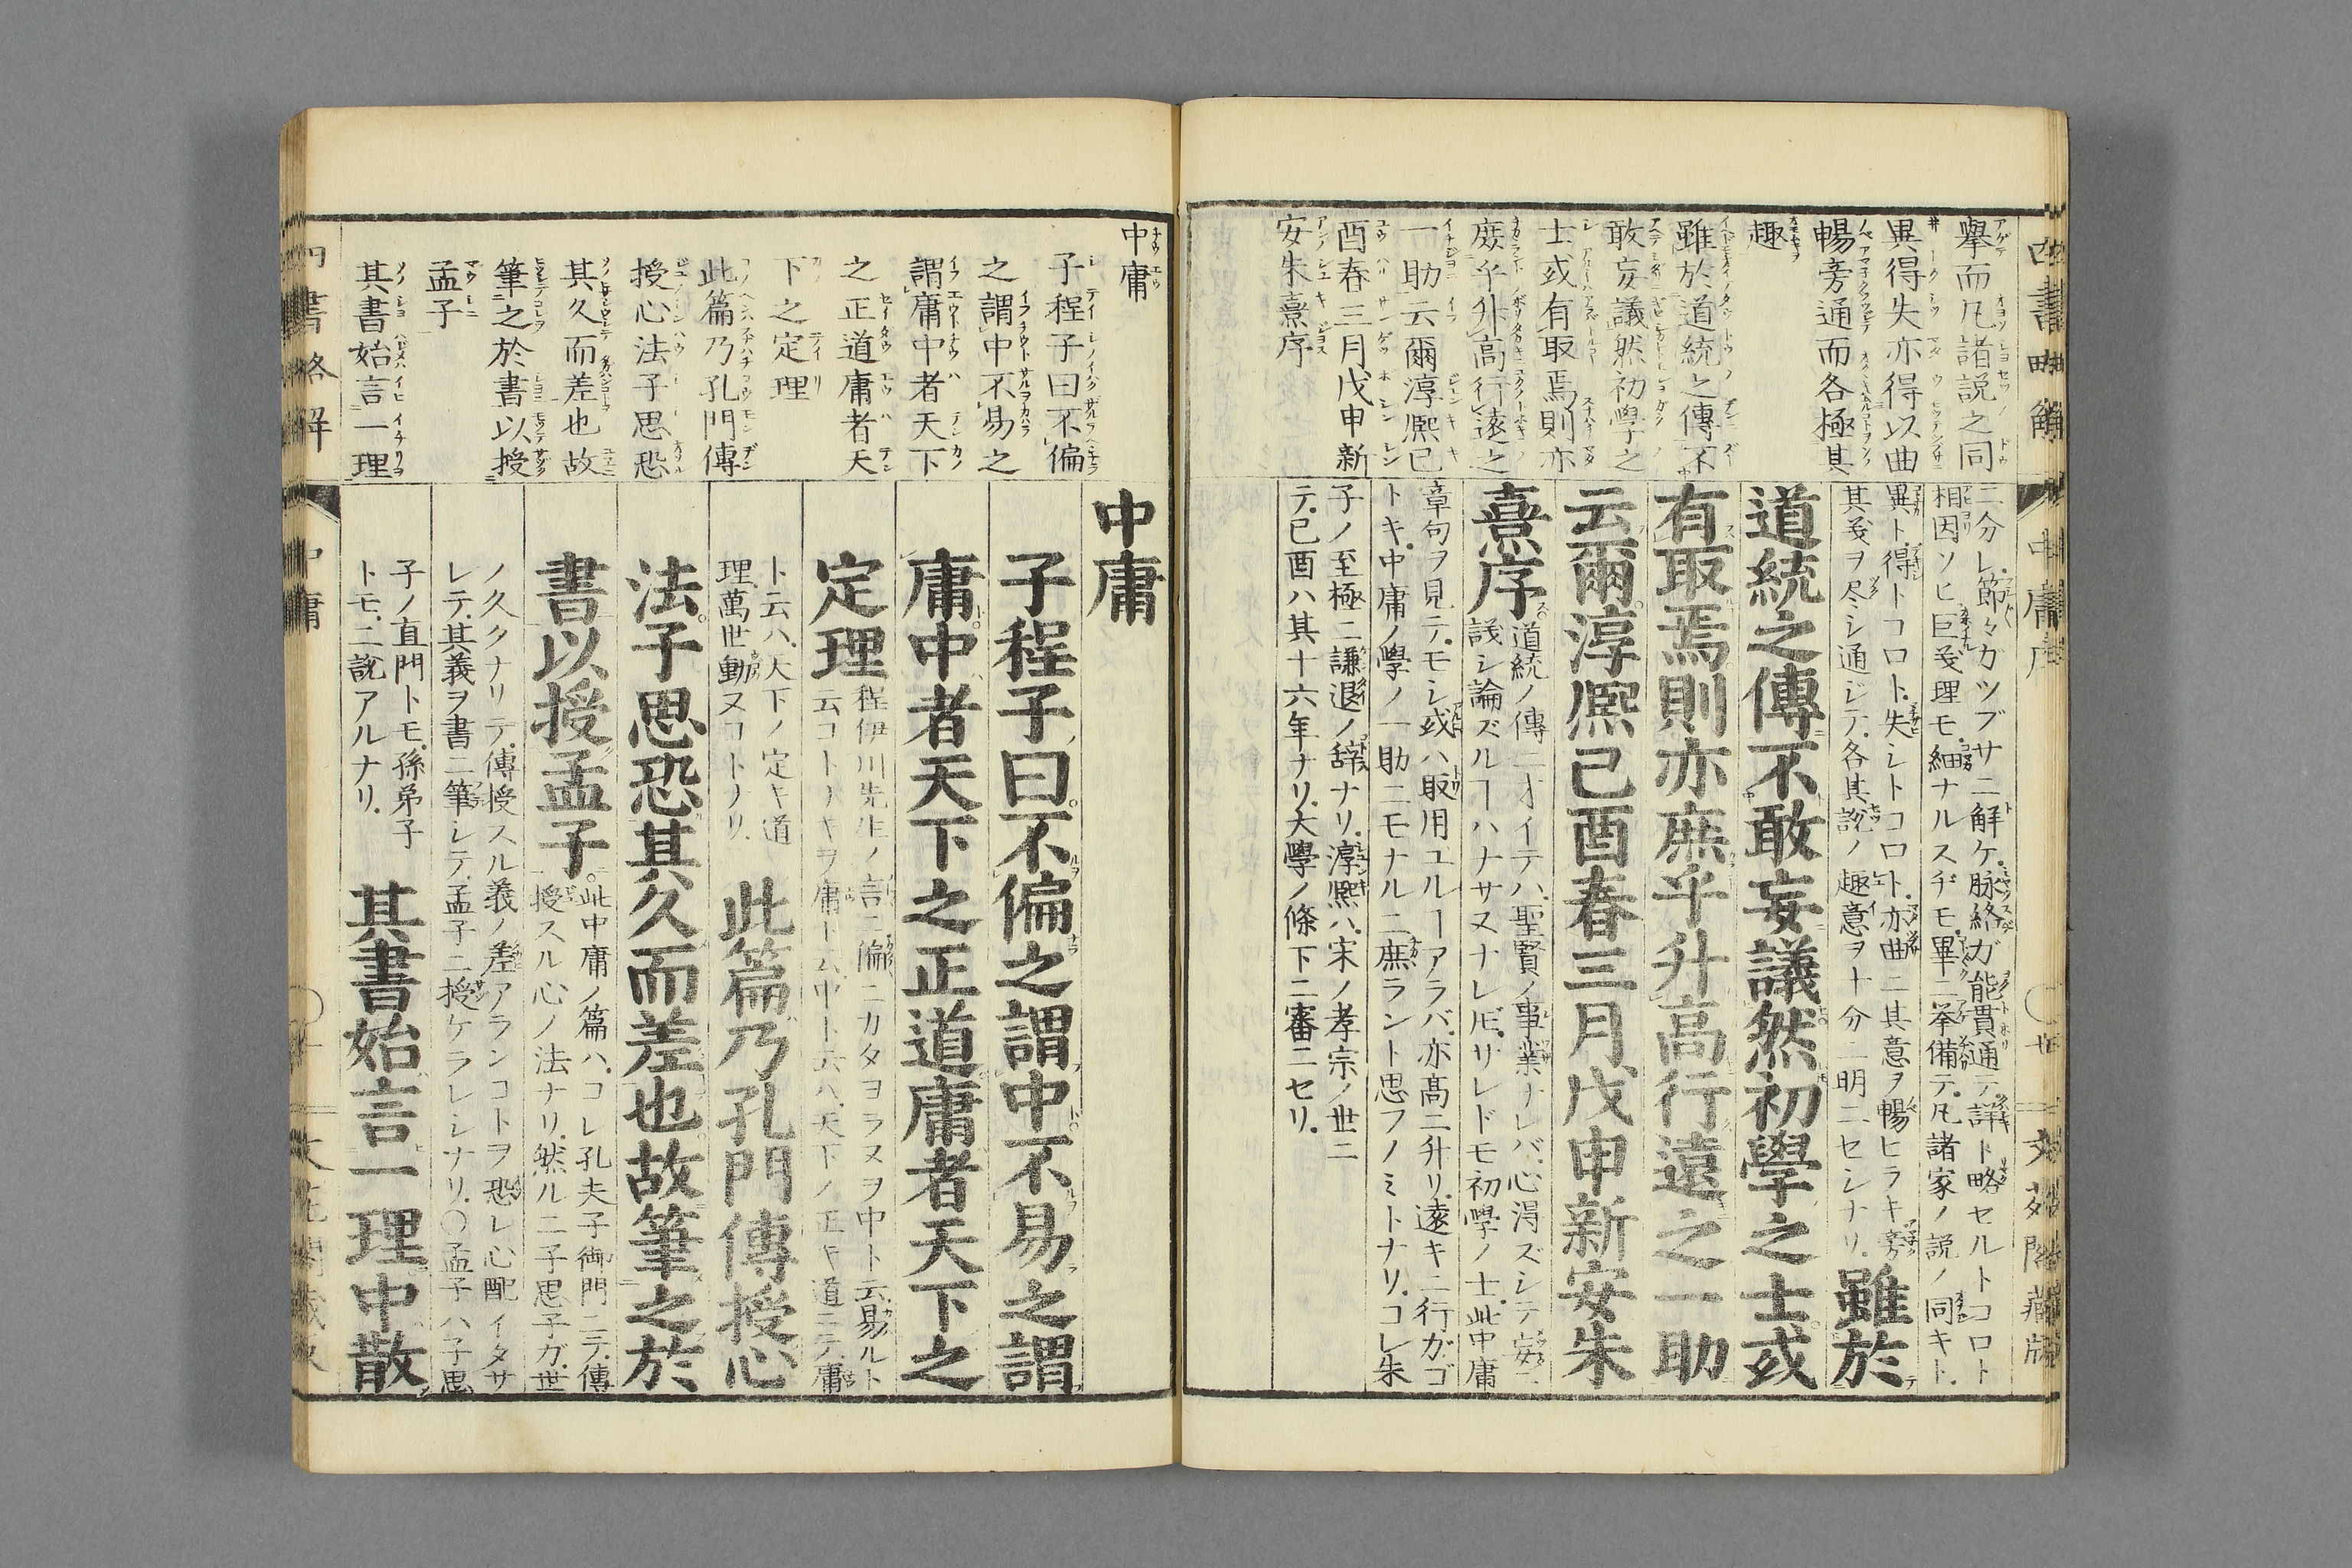 四書略解
中庸序
擧而凡諸説之同
異得失亦得以曲
暢旁通而各極其
趣
雖於道統之傳不
敢妄議然初學之
士或有取焉則亦
庶乎升高行遠之
一助云爾淳熈已
酉春三月戊申新
安朱熹序
二分レ節々カツブサニ解ケ脉絡ガ能貫通テ詳ト略セルトコロト
相因ソヒ巨義理モ細ナルスヂモ畢ニ挙備テ凡諸家ノ説ノ同キト
異ト得トコロト失シトコロト亦曲ニ其意ヲ暢ヒラキ旁
其義ヲ尽シ通ジテ各其説ノ趣意ヲ十分ニ明ニセシナリ
雖於
道統之傳不敢妄議然初學之士或
有取焉則亦庶乎升高行遠之一助
云爾淳熈已酉春三月戊申新安朱
熹序
道統ノ傳ニオイテハ聖賢ノ事業ナレバ心得ズシテ妄ニ
議シ論ズルヿハナサヌナレ𪜈サレドモ初學ノ士此中庸
章句ヲ見テモシ或ハ取用ユルヿアラバ亦高ニ升リ遠キニ行ガゴ
トキ中庸ノ學ノ一助ニモナルニ庶ラント思フノミトナリコレ朱
子ノ至極ニ謙退ノ辞ナリ淳熈ハ宋ノ孝宗ノ世ニ
テ已酉ハ其十六年ナリ大學ノ條下ニ審ニセリ
中庸
子程子曰不偏
之謂中不易之
謂庸中者天下
之正道庸者天
下之定理
此篇乃孔門傳
授心法子思恐
其久而差也故
筆之於書以授
孟子
其書始言一理
中庸
子程子曰不偏之謂中不易之謂
庸中者天下之正道庸者天下之
定理
程伊川先生ノ言ニ偏ニカタヨラヌヲ中ト云易ルト
云コトナキヲ庸ト云中ト云ハ天下ノ正キ道ニテ庸
ト云ハ天下ノ定キ道
理萬世動ヌコトナリ
此篇乃孔門傳授心
法子思恐其久而差也故筆之於
書以授孟子
此中庸ノ篇ハコレ孔夫子御門ニテ傳
授スル心ノ法ナリ然ルニ子思子ガ世
ノ久クナリテ傳授スル義ノ差アランコトヲ恐レ心配イタサ
レテ其義ヲ書ニ筆シテ孟子ニ授ケラレシナリ〇孟子ハ子思
子ノ直門トモ孫弟子
トモ二説アルナリ
其書始言一理中散
四書略解
中庸